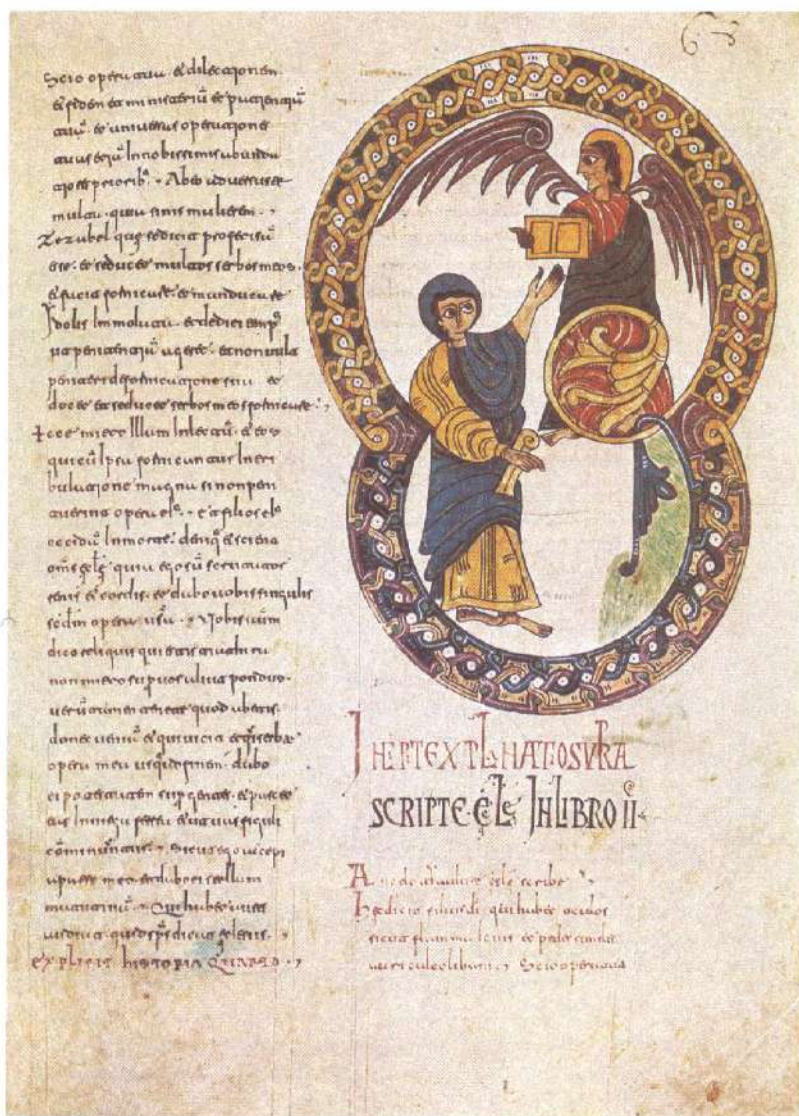 Scio opera tua et dilectionem
et fidem et ministeriū et pacientiā
tuā et universas operationes
tuas in nobissimis abunda
tiores priorib; Abeo adversus te
multa quia sinis mulierem
Zezabel que se dicit profetissā
esse et seducet multos serbos meos
et facit fornicare et manducare
Idolis immolata et dedi ei
ut penitentiā ageret et non vult
penitere de fornicatione sua et
docet et seducet serbos meos fornicare
Ecce mitto illam in lectū et eos
qui cū ipsa fornicantur in tri
bulatione magna si non peni
tuerint opera eis et filios eis
occidā in morte deniq et scient
oms ecle quia ego sū scrutator
renis et cordis et dabo vobis singulis
scdm opera vsa Vobis autm
dico reliquis qui estis
non mitto supr vos aliut pondus
verūtamen tenete quod abetis
donec veniā et qui vicit et qui serbat
opera mea usq ad finem dabo
ei potestatem supr gentes et pascet
eas in virga ferrea et ut vas figuli
cōminuntur Sicut ego accepi
a patre meo et dabo ei stellam
matutinā Qui habet aures
audiat quid sps dicat eclesiis
explicit historia QUARTO
INCPT EXPLNATIO SVPRA
SCRIPTE ECLE IN LIBRO II
Angelo ecle scribe
Hec dicit filius di qui habet oculos
sicut flamma ignis et pedes similes
auricalco libani Scio opera tua